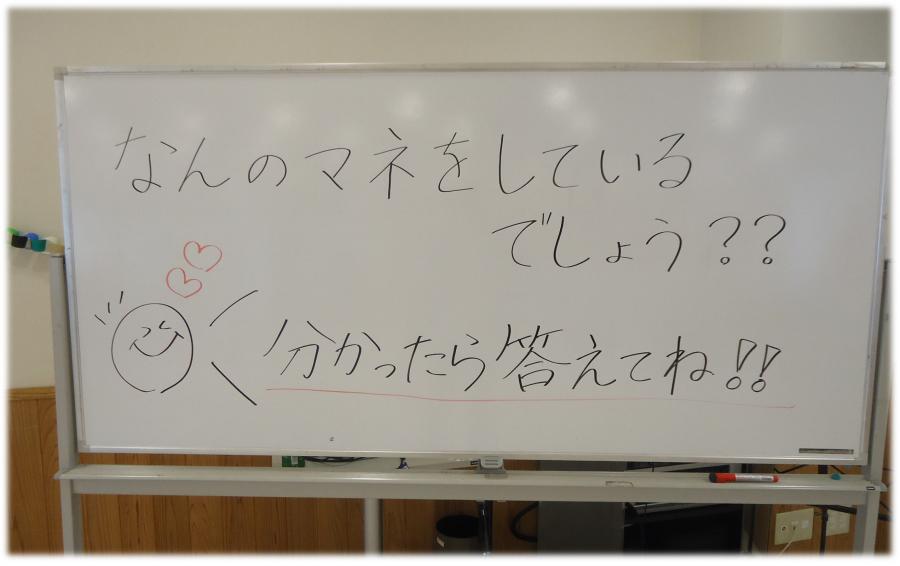 なんのマネをしている
でしょう??
分かったら答えてね!!